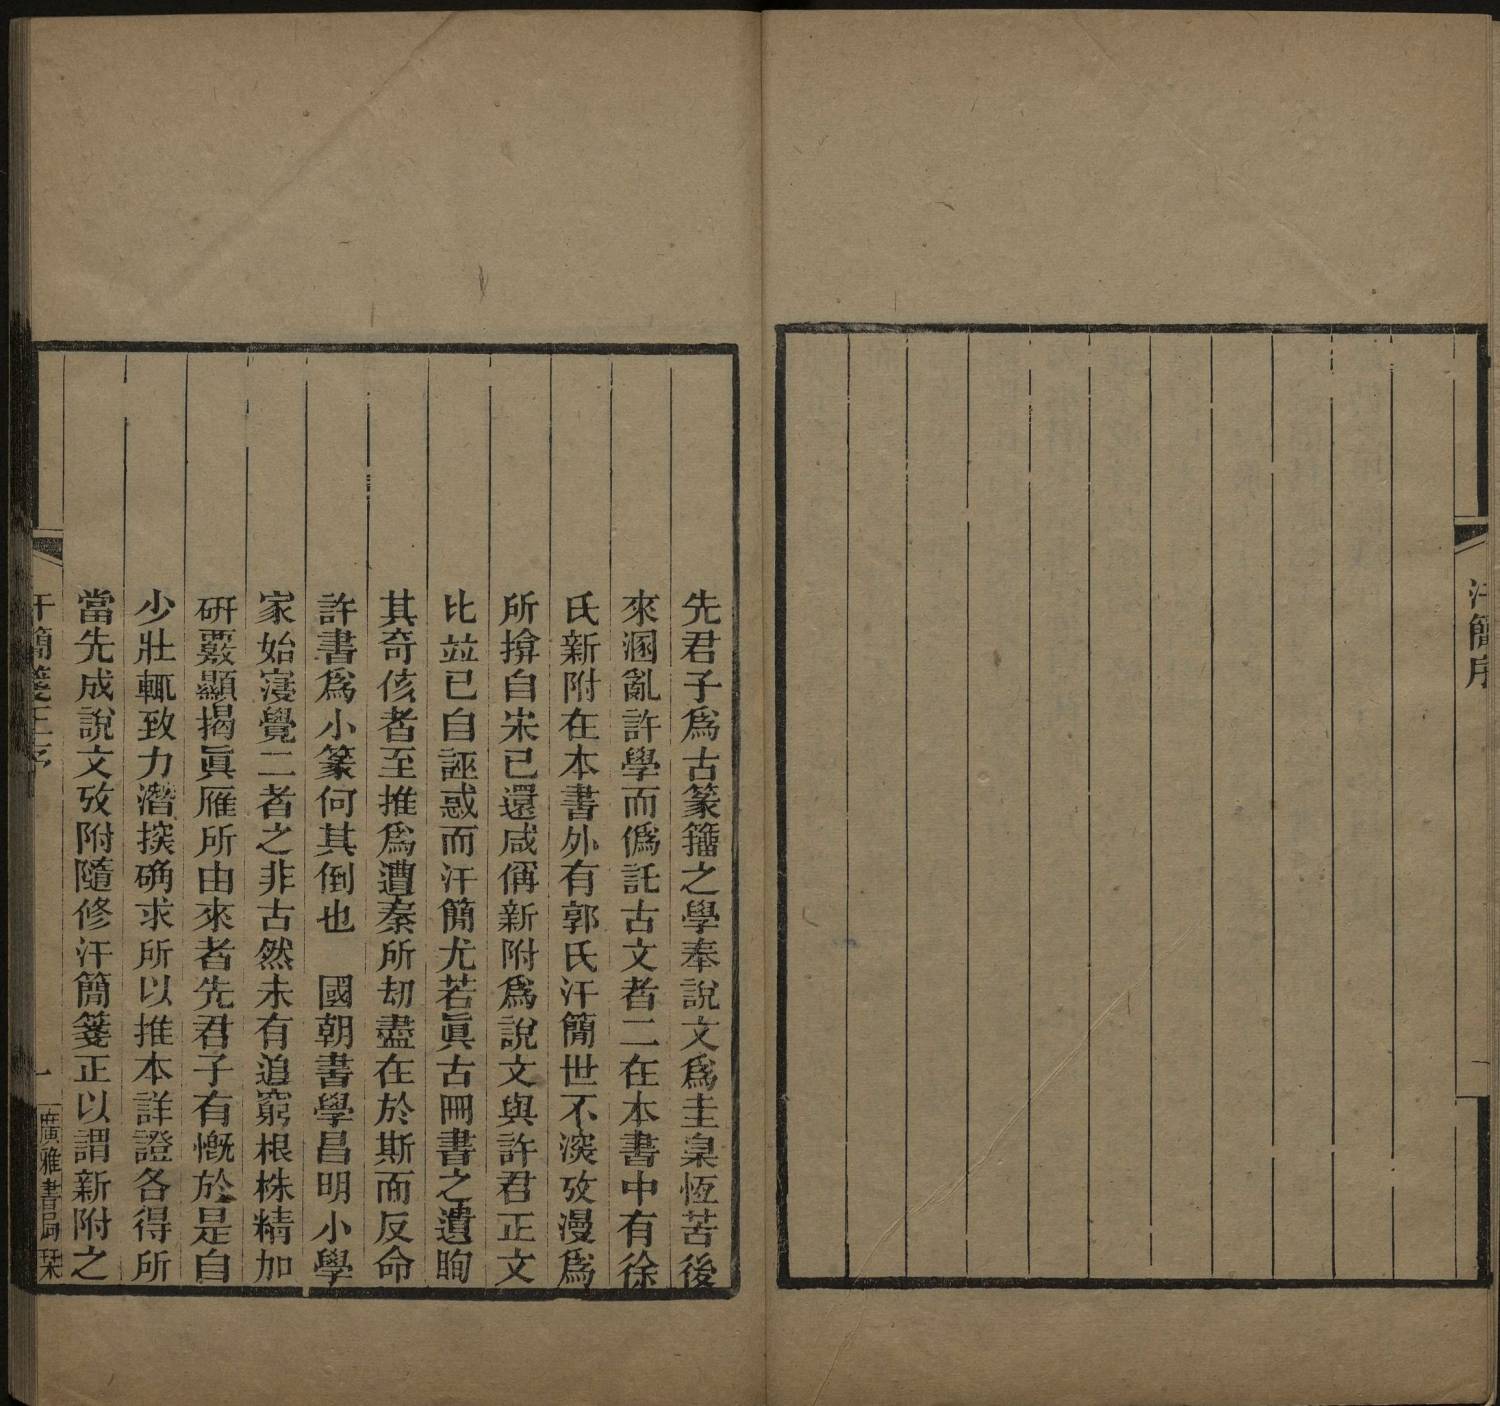 汗簡序
一
先君子爲古篆籀之學奉說文爲圭臬恆苦後
來溷亂許學而僞託古文者二在本書中有徐
氏新附在本書外有郭氏汗簡世不深攷漫爲
所揜自宋已還咸偁新附爲說文與許君正文
比竝已自誣惑而汗簡尤若眞古冊書之遺眴
其奇侅者至推爲遭秦所劫盡在於斯而反命
許書爲小篆何其倒也　國朝書學昌明小學
家始寖覺二者之非古然未有追窮根株精加
硏覈顯揭眞雁所由來者先君子有慨於是自
少壯輒致力潛揬确求所以推本詳證各得所
當先成說文攷附隨修汗簡箋正以謂新附之
汗簡箋正序
一
廣雅書局栞